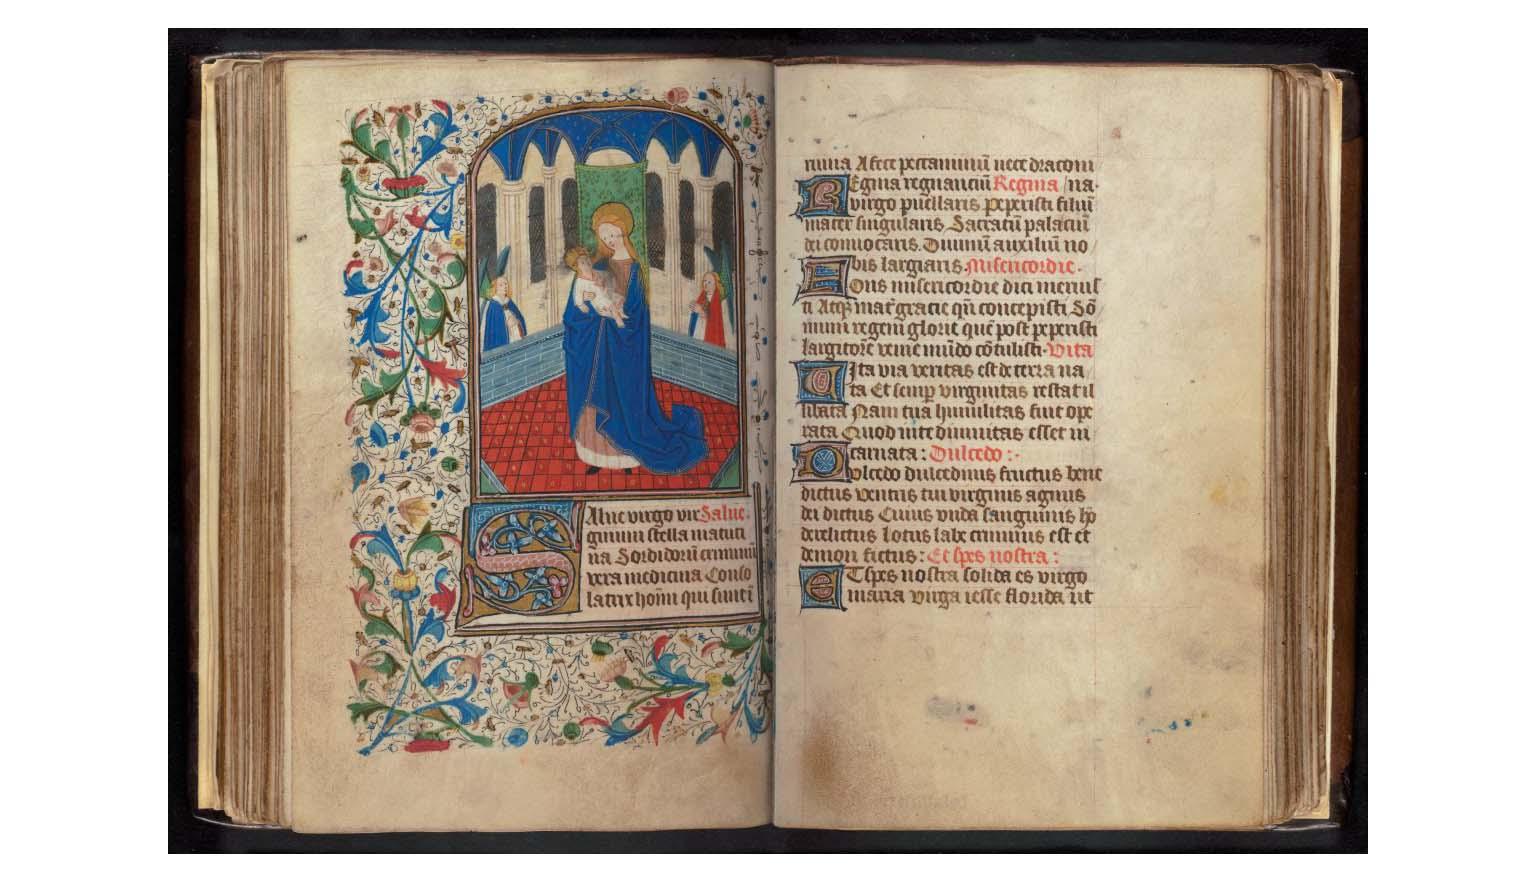 Alue virgo vir Salue.
ginum stella matuti
na Sordidorū criminū
vera medicina Conso
latrix hoīm qui sunt ī
ruina A fece peccaminū nece draconi
Egina regnanciū Regina / na.
virgo puellaris peperisti filiū
mater singularis Sacratū palaciū
dei conuocaris. Diuinū auxiliū no
bis largiaris. Misericordie.
Ons misericordie dici meruis
ti Atq; mat̄ gracie qn̄ concepisti Sō
mum regem glorie quē post peperisti
largitorē venie mūdo cōtulisti. Vita
Ita via veritas est de terra na
ta Et semp virginitas restat il
libata Nam tua humilitas fuit ope
rata Quod in te diuinitas esset in
carnata: Dulcedo:.
Olcedo dulcedinis fructus bene
dictus ventris tui virginis agnus
dei dictus Cuius vnda sanguinis hō
derelictus lotus labe criminis est et
demon fictus: Et spes nostra:
T spes nostra solida es virgo
maria virga iesse florida ut